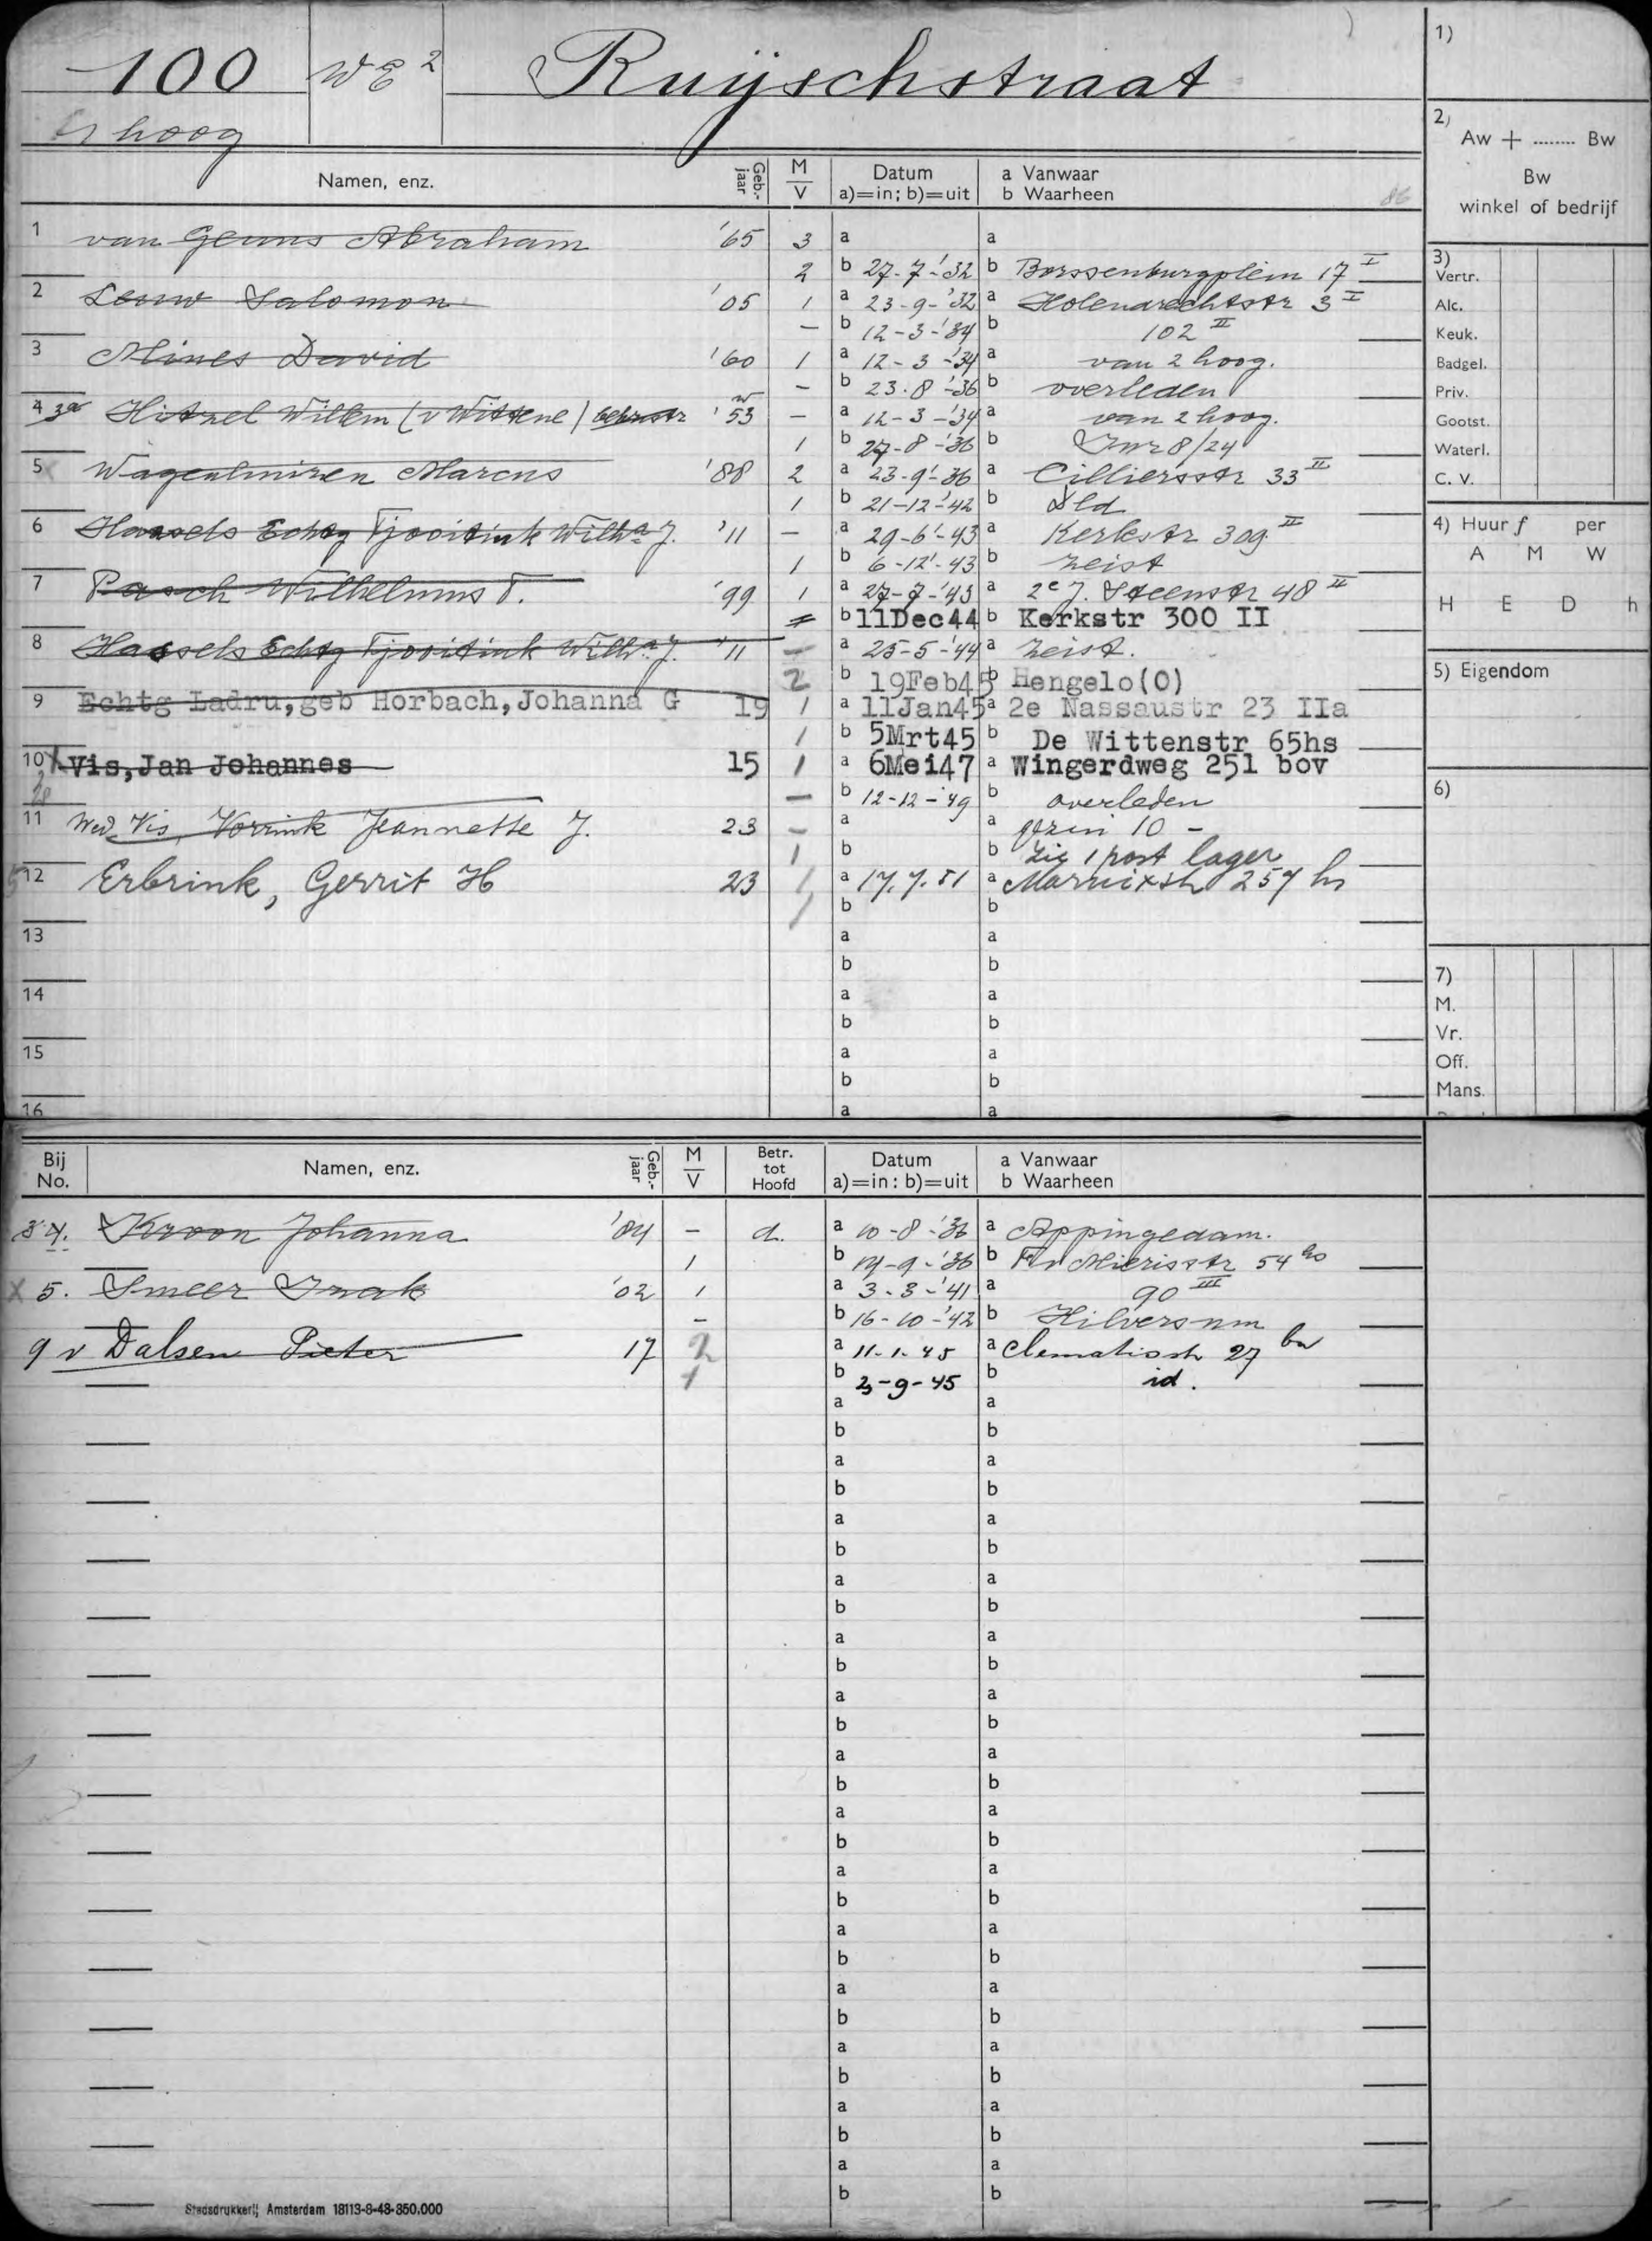 100 WE 2 Ruijschstraat
hoog
Namen, enz. Geb.-jaar M V Datum a)=in; b)=uit a Vanwaar b Waarheen 86
1 van Geuns Abraham '65 3 a a
2 b 27-7-'32 b Borssenburgplein 17 I
2 Leuw Salomon '05 1 a 23-9-'32 a Holendrechtstr 3 I
– b 12-3-'34 b 102 II
3 Mines David '60 1 a 12-3-'34 a van 2 hoog.
– b 23.8-'36 b overleden
4 3a Willem '53 – a 12-3-'34 a van 2 hoog.
1 b 27-8-'36 b 8/24
5 Wagenhuizen Marcus '88 2 a 23-9-'36 a Cilliersstr 33 II
1 b 21-12-'42 b Dld
6 Hassels Echtg Tjooitink Wilha J. '11 – a 29-6-'43 a Kerkstr 309 II
1 b 6-12-'43 b Zeist
7 Pasch Wilhelmus T. '99 1 a 27-7-'43 a 2e J. Steenstr 48 II
b 11Dec44 b Kerkstr 300 II
8 Hassels Echtg Tjooitink Wilha J. '11 – a 25-5-'44 a Zeist.
2 b 19Feb45 b Hengelo(O)
9 Echtg Ladru, geb Horbach, Johanna G 19 1 a 11Jan45 a 2e Nassaustr 23 IIa
1 b 5Mrt45 b De Wittenstr 65hs
10 Vis, Jan Johannes 15 1 a 6Mei47 a Wingerdweg 251 bov
– b 12-12-'49 b overleden
11 Wed Vis, Vorrink Jeannette J. 23 – a a gezin 10 –
1 b b Zie 1 post lager
12 Erbrink, Gerrit H 23 1 a 17.7.51 a Marnixstr 257 hs
1 b b
13 a a
b b
14 a a
b b
15 a a
b b
16 a a
1)
2) Aw + ........ Bw
Bw
winkel of bedrijf
3)
Vertr.
Alc.
Keuk.
Badgel.
Priv.
Gootst.
Waterl.
C. V.
4) Huur ƒ per
A M W
H E D h
5) Eigendom
6)
7)
M.
Vr.
Off.
Mans.
Bij No. Namen, enz. Geb.-jaar M V Betr. tot Hoofd Datum a)=in: b)=uit a Vanwaar b Waarheen
4. Kroon Johanna '84 – d. a 10-8-'36 a Appingedam.
1 b 14-9-'36 b Fr v Mierisstr 54 hs
X 5. Smeer Izak '02 1 a 3-3-'41 a 90 III
– b 16-10-'42 b Hilversum
9 v Dalsen Pieter 17 2 a 11-1-45 a Clematisstr 27 bv
1 b 3-9-45 b id.
a a
b b
a a
b b
a a
b b
a a
b b
a a
b b
a a
b b
a a
b b
a a
b b
a a
b b
a a
b b
a a
b b
a a
b b
a a
b b
a a
b b
Stadsdrukkerij Amsterdam 18113-8-48-350.000